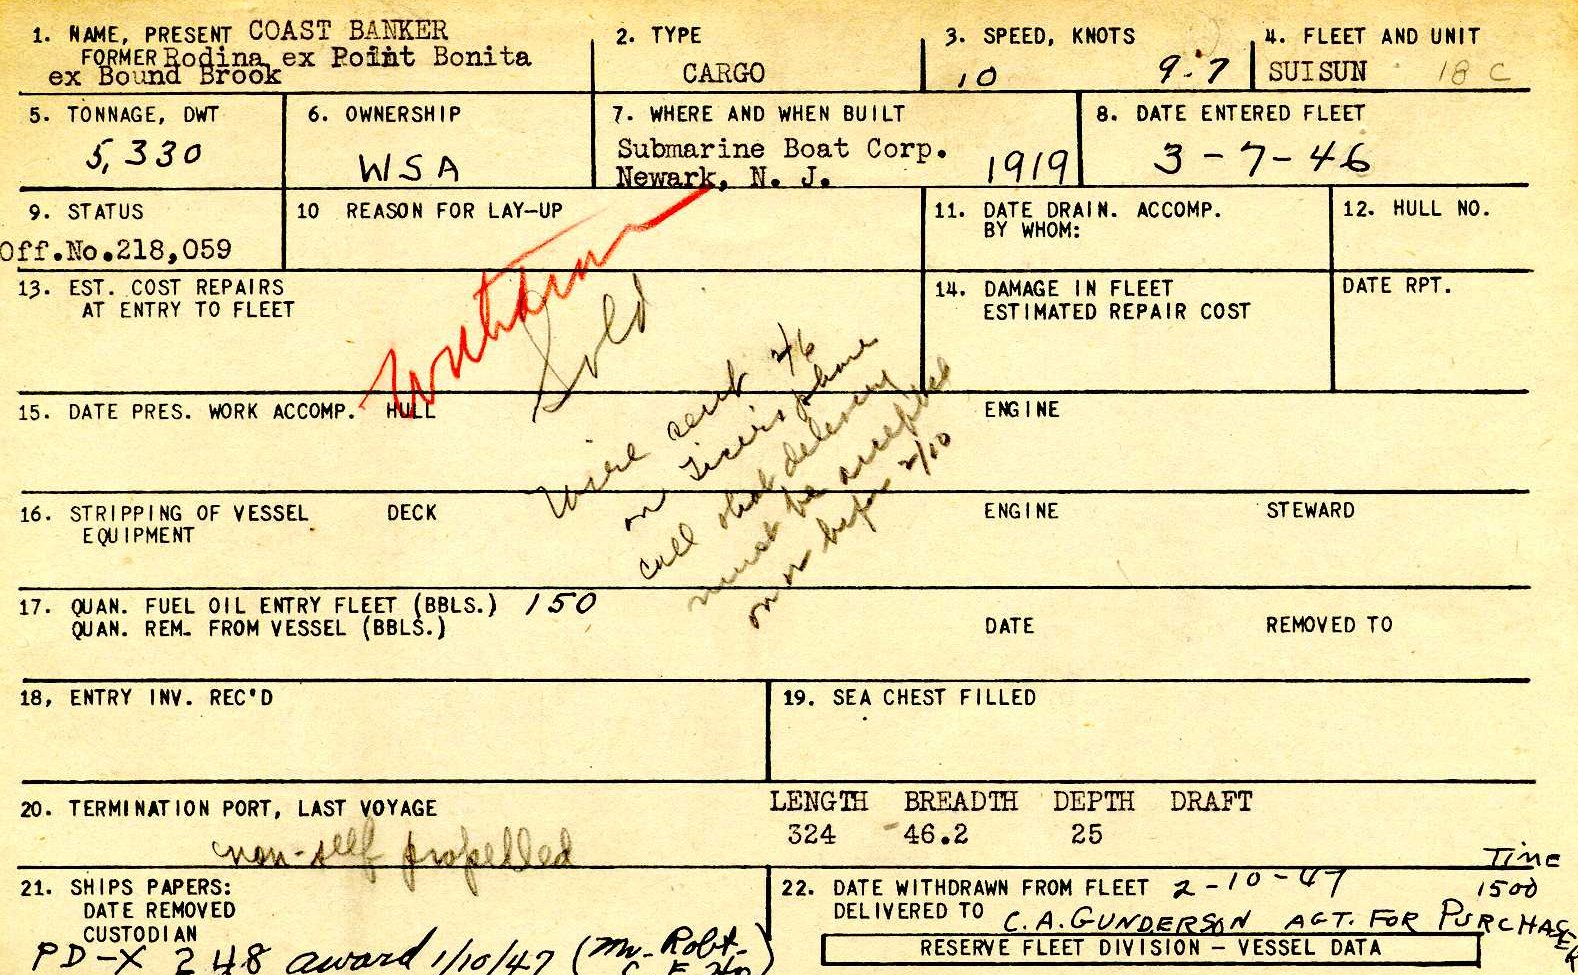 1. NAME, PRESENT COAST BANKER
FORMER Rodina ex Point Bonita
ex Bound Brook
2. TYPE
CARGO
3. SPEED, KNOTS
10 9.7
4. FLEET AND UNIT
SUISUN 18 C
5. TONNAGE, DWT
5,330
6. OWNERSHIP
WSA
7. WHERE AND WHEN BUILT
Submarine Boat Corp.
Newark, N. J. 1919
8. DATE ENTERED FLEET
3-7-46
9. STATUS
Off.No.218,059
10 REASON FOR LAY-UP
11. DATE DRAIN. ACCOMP.
BY WHOM:
12. HULL NO.
13. EST. COST REPAIRS
AT ENTRY TO FLEET
14. DAMAGE IN FLEET
ESTIMATED REPAIR COST
DATE RPT.
Withdrawn
Sold
Wire sent 2/6
on phone
call that delivery
must be accepted
on or before 2/10
15. DATE PRES. WORK ACCOMP. HULL
ENGINE
16. STRIPPING OF VESSEL DECK
EQUIPMENT
ENGINE STEWARD
17. QUAN. FUEL OIL ENTRY FLEET (BBLS.) 150
QUAN. REM. FROM VESSEL (BBLS.)
DATE REMOVED TO
18, ENTRY INV. REC'D
19. SEA CHEST FILLED
20. TERMINATION PORT, LAST VOYAGE
non-self propelled
LENGTH BREADTH DEPTH DRAFT
324 46.2 25
21. SHIPS PAPERS:
DATE REMOVED
CUSTODIAN
PD-X 248 award 1/10/47 (Mr. Robt.
22. DATE WITHDRAWN FROM FLEET 2-10-47 TIME 1500
DELIVERED TO C.A. GUNDERSON AGT. FOR PURCHASER
RESERVE FLEET DIVISION - VESSEL DATA